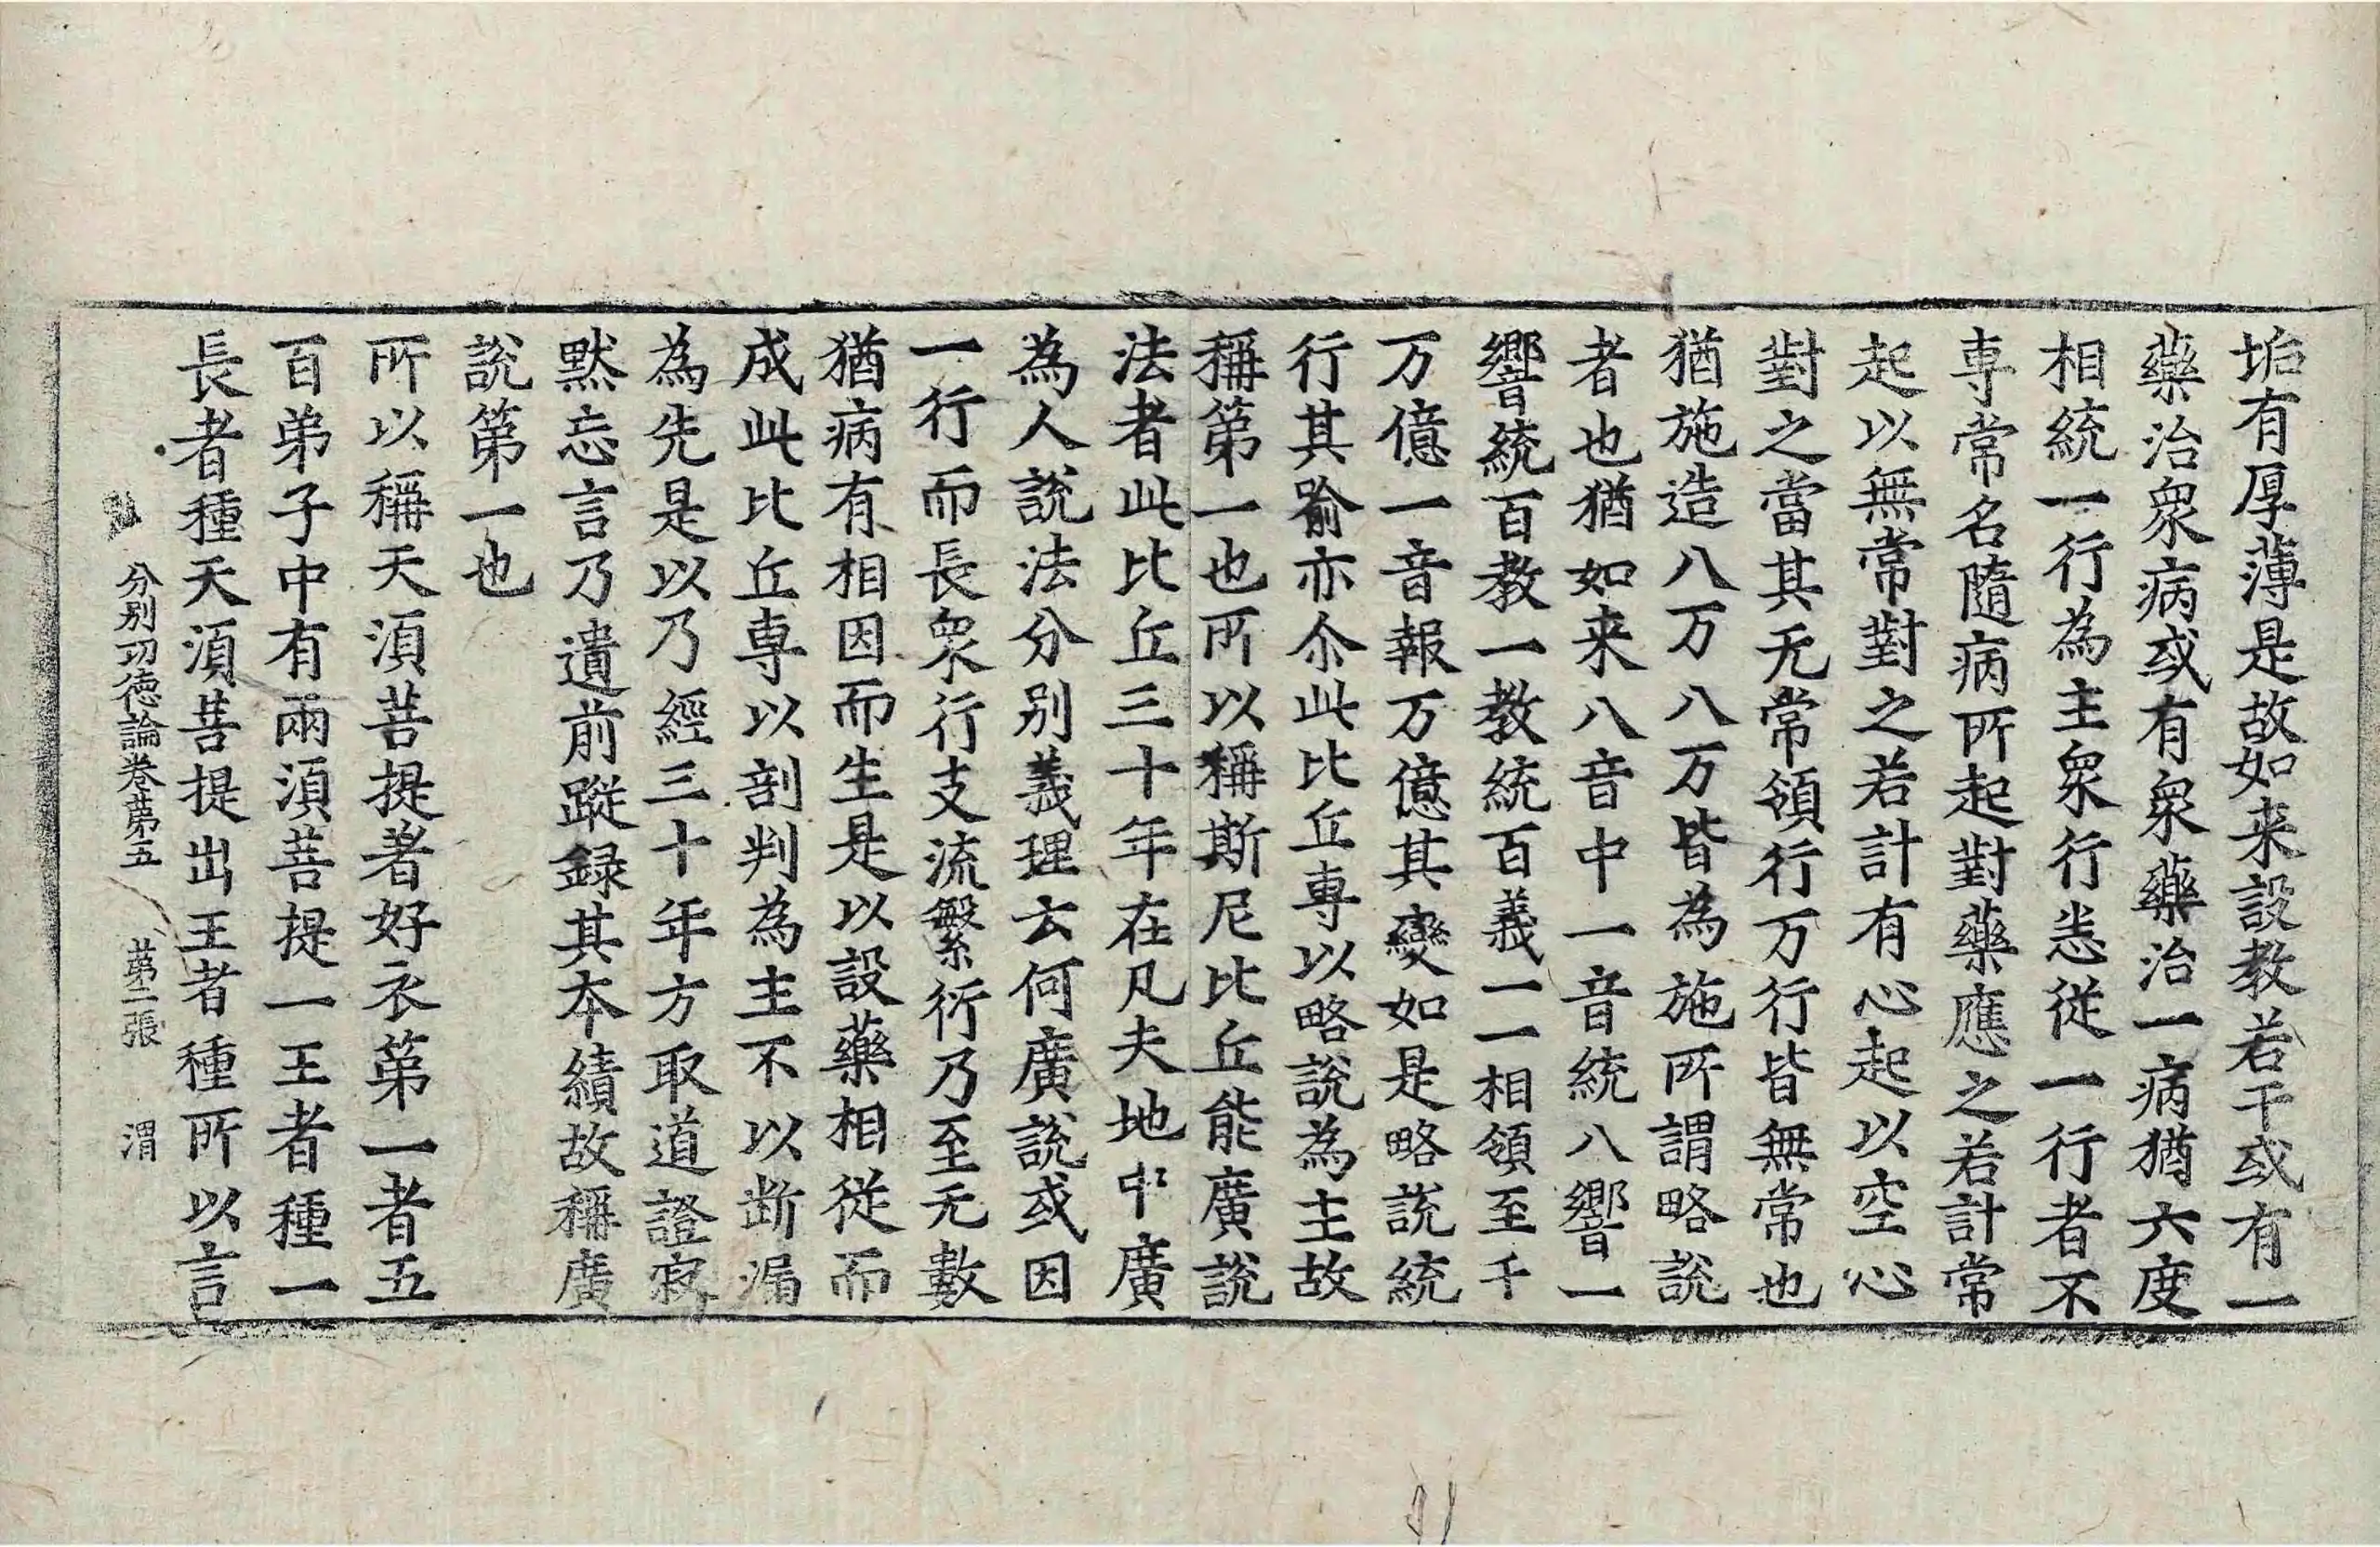 垢有厚薄是故如来設教若干或有一
藥治衆病或有衆藥治一病猶六度
相統一行為主衆行恙従一行者不
専常名隨病所起對藥應之若計常
起以無常對之若計有心起以空心
對之當其无常領行万行皆無常也
猶施造八万八万皆為施所謂略說
者也猶如来八音中一音統八響一
響統百教一教統百義一一相領至千
万億一音報万億其變如是略說統
行其喻亦尒此比丘専以略說為主故
稱第一也所以稱斯尼比丘能廣說
法者此比丘三十年在凡夫地中廣
為人說法分别義理云何廣說或因
一行而長衆行支流繁衍乃至无數
猶病有相因而生是以設藥相従而
成此比丘専以剖判為主不以断漏
為先是以乃經三十年方取道證寂
默忘言乃遺前蹤録其本績故稱廣
說第一也
所以稱天湏菩提著好衣第一者五
百弟子中有兩湏菩提一王者種一
長者種天湏菩提出王者種所以言
分别功徳論卷第五 第二張 渭